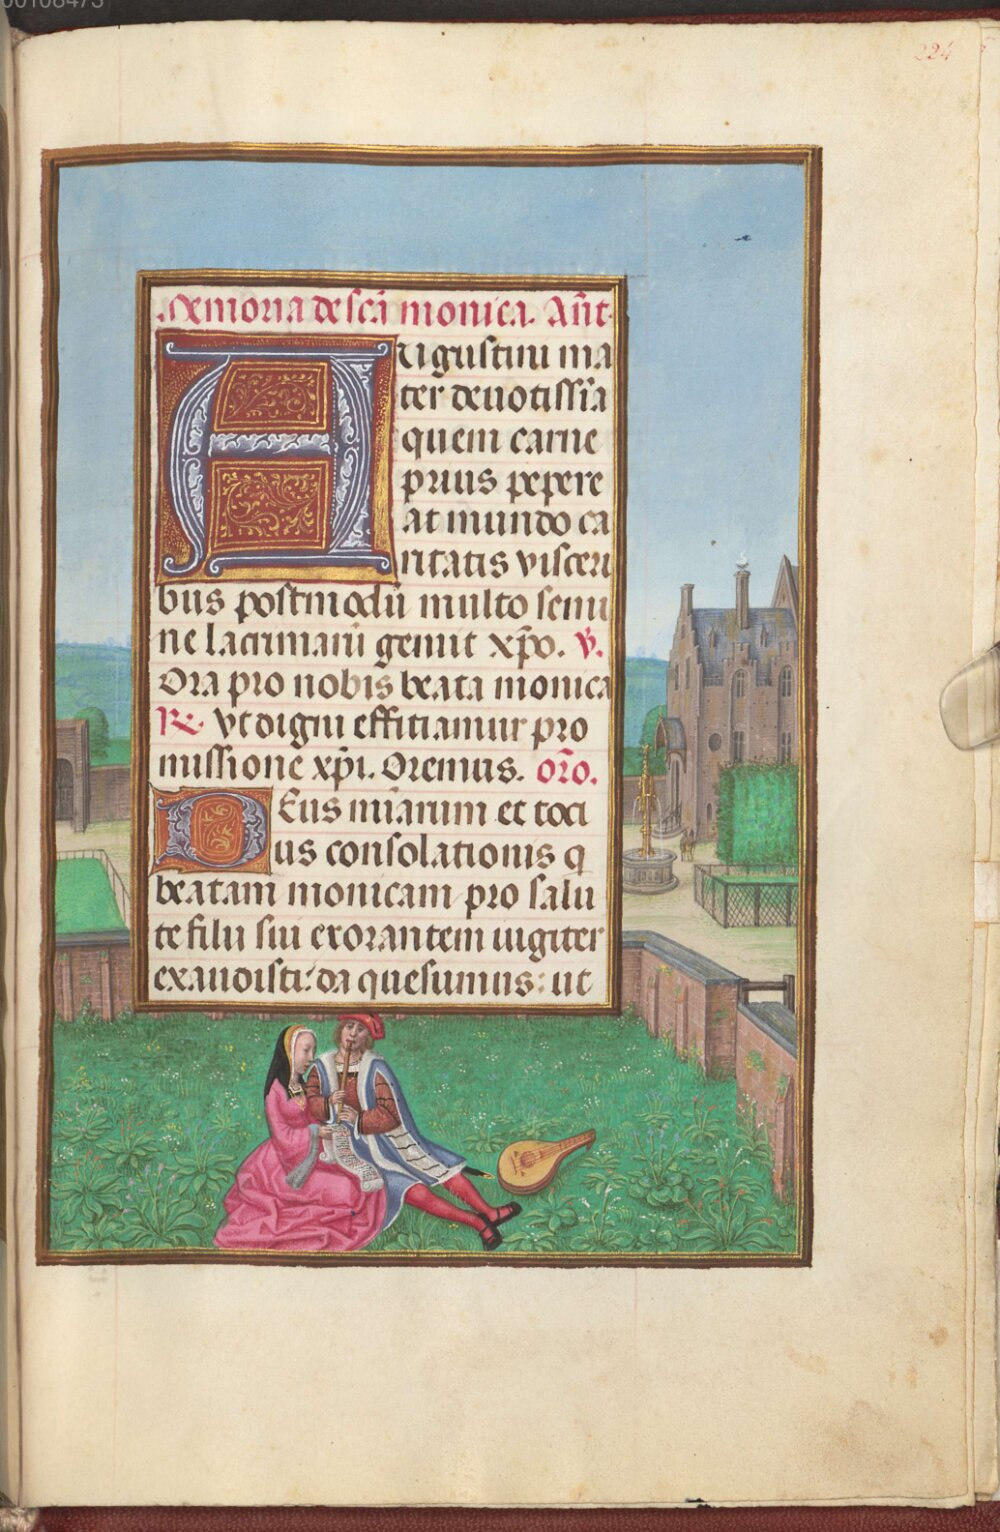 00108473
224
Memoria de scā monica. Añt.
Augustini ma
ter deuotissīa
quem carne
prius pepere
at mundo ca
ritatis visceri
bus postmodū multo semi
ne lacrimarū genuit xp̄o. ℣.
Ora pro nobis beata monica
℟. vt digni efficiamur pro
missione xp̄i. Oremus. oīo.
Deus mīarum et toci
us consolationis q
beatam monicam pro salu
te filii sui exorantem iugiter
exaudisti: da quesumus: ut